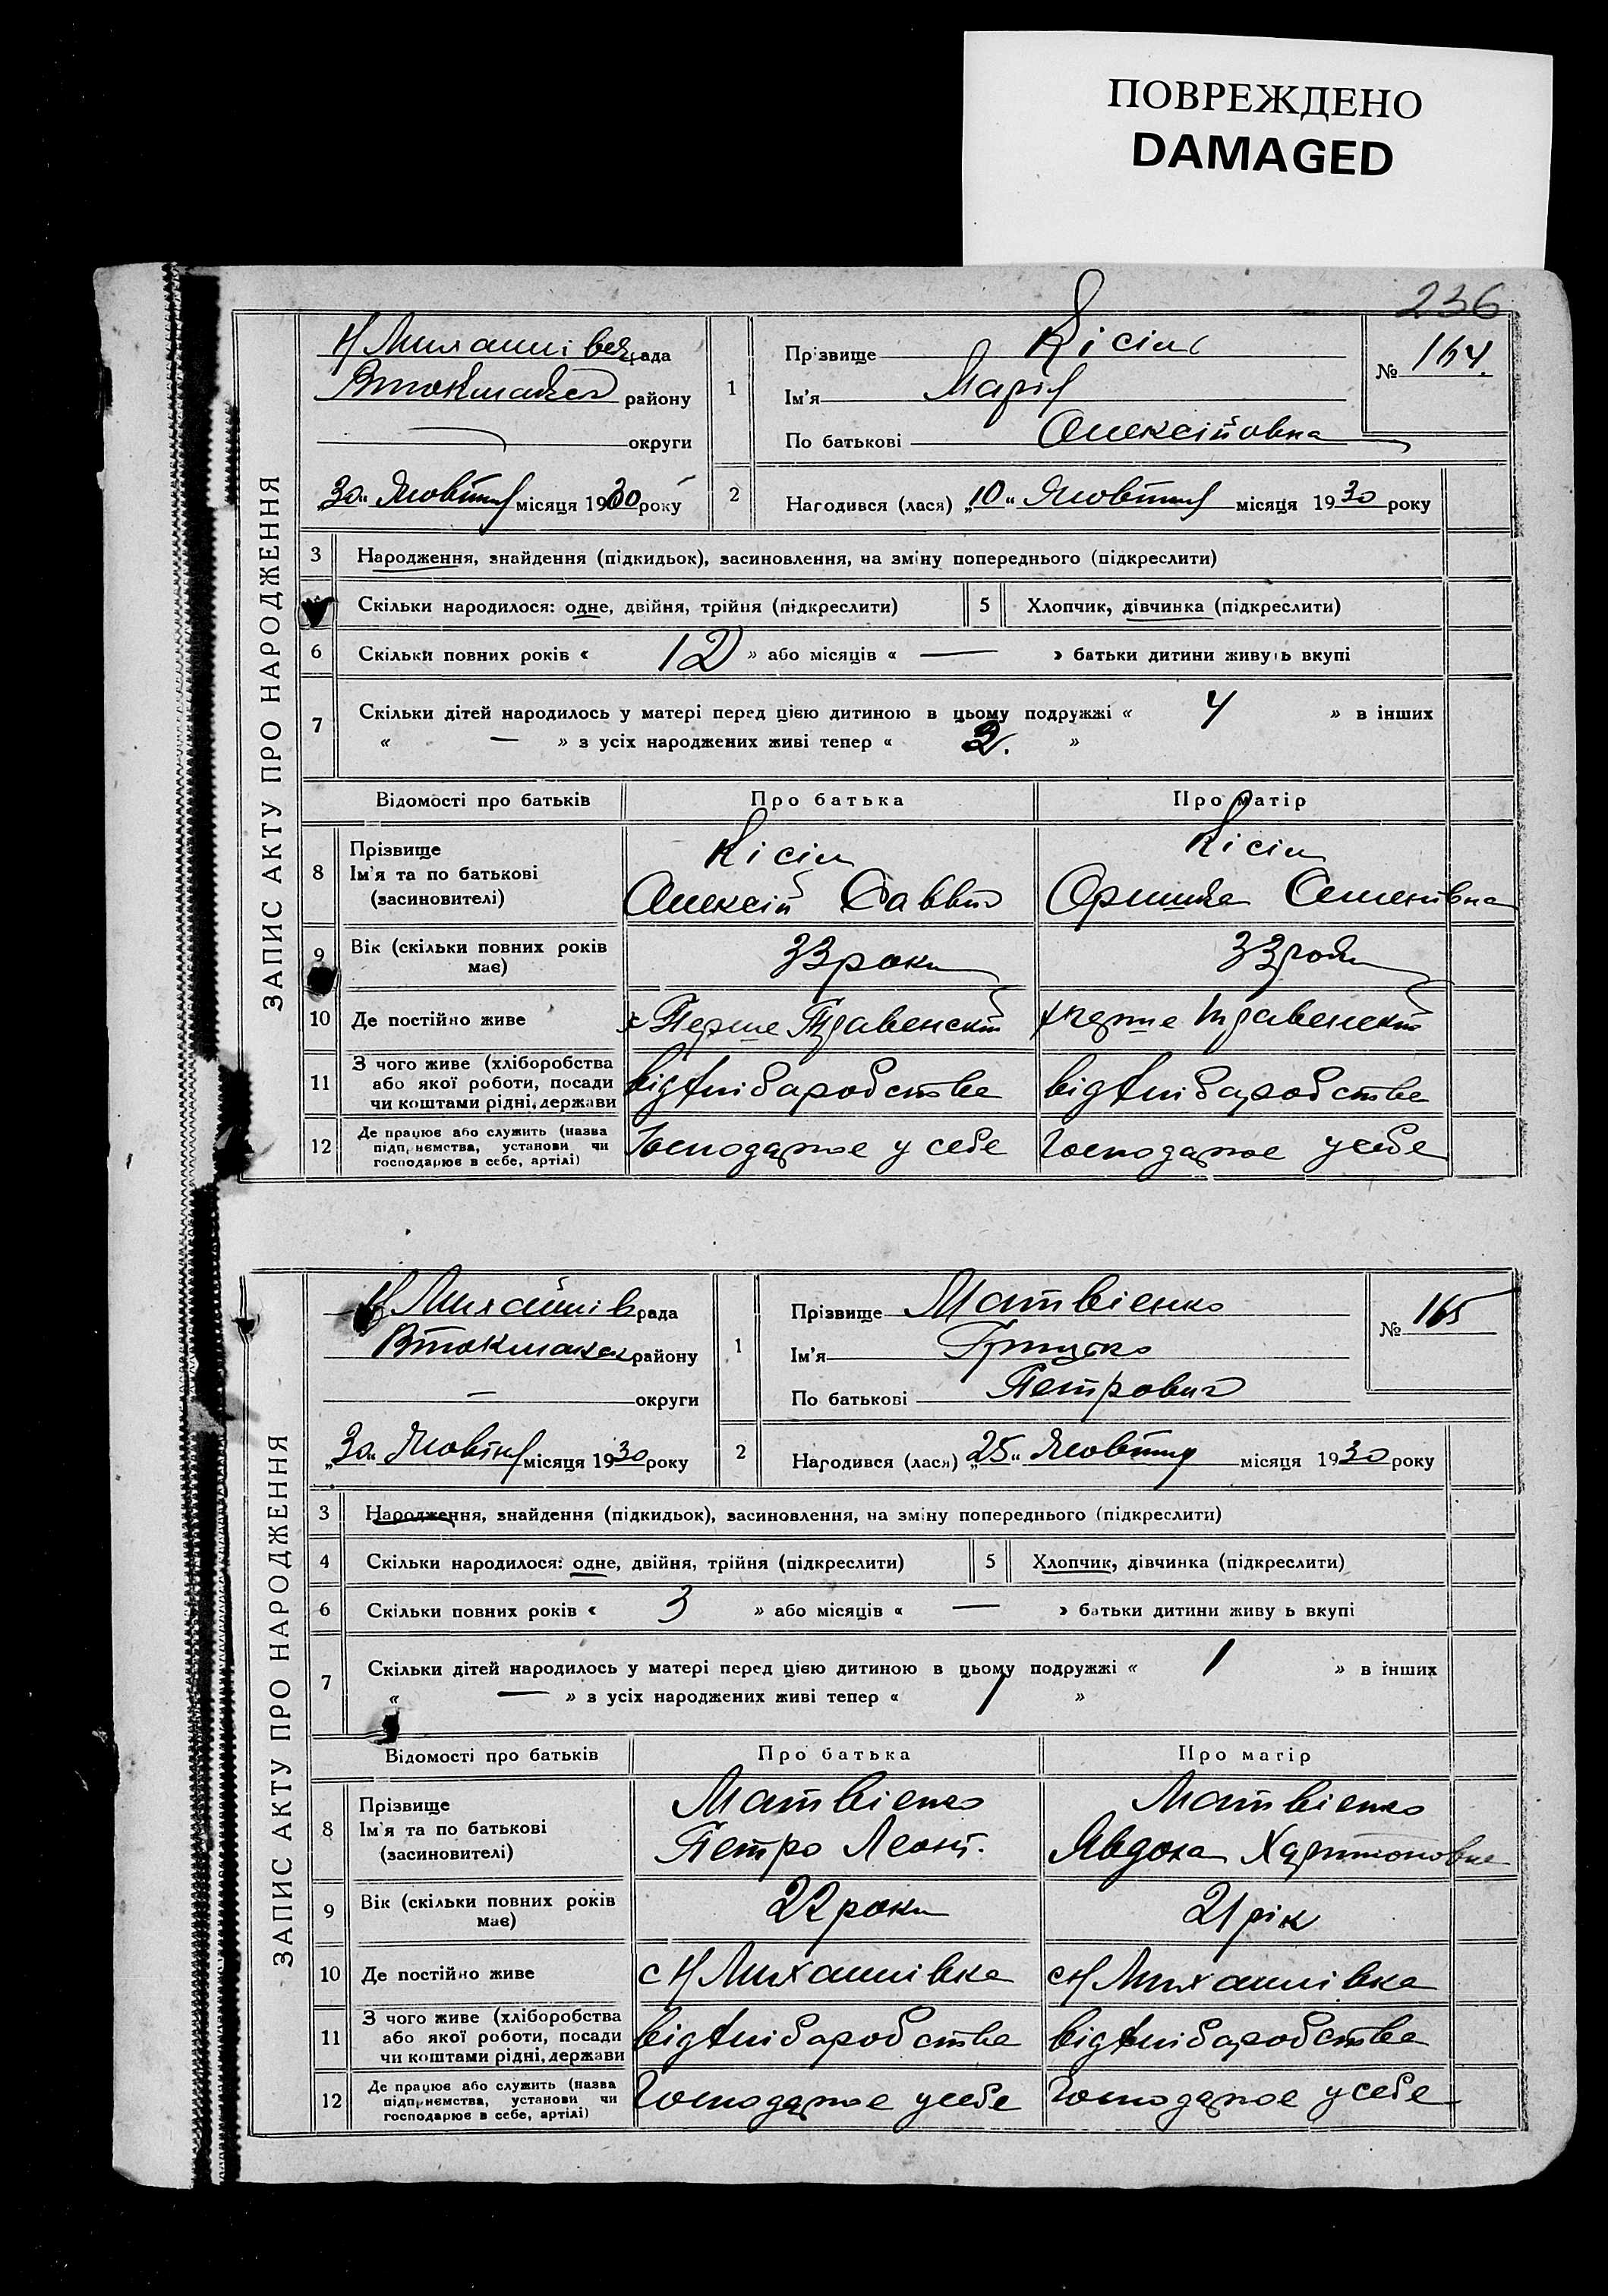 ПОВРЕЖДЕНО
DAMAGED
236
ЗАПИС АКТУ ПРО НАРОДЖЕННЯ
Н Михайлівська рада
Втокмацьк району
округи
"30" Жовтня місяця 1930 року
1
Прізвище Кісіль
Ім'я Марія
По батькові Олексійовна
№ 164.
2
Народився (лася) "10" Жовтня місяця 1930 року
3 Народження, знайдення (підкидьок), засиновлення, на зміну попереднього (підкреслити)
Скільки народилося: одне, двійня, трійня (підкреслити) 5 Хлопчик, дівчинка (підкреслити)
6 Скільки повних років « 12 » або місяців « — » батьки дитини живуть вкупі
7 Скільки дітей народилось у матері перед цією дитиною в цьому подружжі « 4 » в інших
« — » з усіх народжених живі тепер « 2. »
Відомості про батьків Про батька Про матір
8 Прізвище
Ім'я та по батькові
(засиновителі)
Кісіль
Олексій Саввич
Кісіль
Оришка Семенівна
9 Вік (скільки повних років
має)
33 роки
33 роки
10 Де постійно живе
х Перше
х перше
11 З чого живе (хліборобства
або якої роботи, посади
чи коштами рідні, держави
від хліборобства
від хліборобства
12 Де працює або служить (назва
підприємства, установи чи
господарює в себе, артілі)
Господарює у себе
Господарює у себе
ЗАПИС АКТУ ПРО НАРОДЖЕННЯ
Н Михайлів рада
Втокмацьк району
— округи
"30" Жовтня місяця 1930 року
1
Прізвище Матвієнко
Ім'я Грицько
По батькові Петрович
№ 165
2
Народився (лася) "25" Жовтня місяця 1930 року
3 Народження, знайдення (підкидьок), засиновлення, на зміну попереднього (підкреслити)
4 Скільки народилося: одне, двійня, трійня (підкреслити) 5 Хлопчик, дівчинка (підкреслити)
6 Скільки повних років « 3 » або місяців « — » батьки дитини живуть вкупі
7 Скільки дітей народилось у матері перед цією дитиною в цьому подружжі « 1 » в інших
« — » з усіх народжених живі тепер « 1 »
Відомості про батьків Про батька Про матір
8 Прізвище
Ім'я та по батькові
(засиновителі)
Матвієнко
Петро Леонт.
Матвієнко
Явдоха Харитоновна
9 Вік (скільки повних років
має)
22 роки
21 рік
10 Де постійно живе
с Н Михайлівка
с Н Михайлівка
11 З чого живе (хліборобства
або якої роботи, посади
чи коштами рідні, держави
від хліборобства
від хліборобства
12 Де працює або служить (назва
підприємства, установи чи
господарює в себе, артілі)
Господарює у себе
Господарює у себе